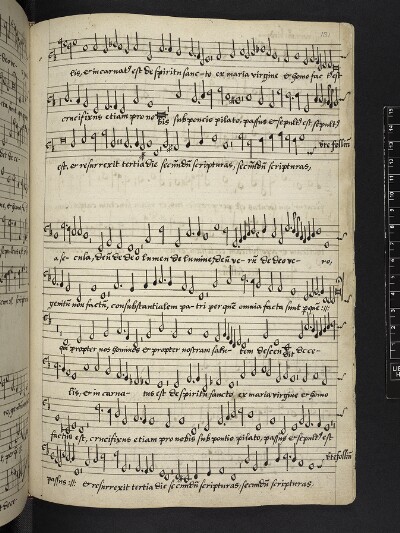 lis, et incarnat9 est de spiritu sanc-to ex maria virgine et homo fac9 est
crucifixus etiam pro no bis sub poncio pilato, passus et sepult9 est sepult9
est, et resurrexit tertia die secūdū scripturas, secūdū scripturas,
a secula, deū de deo lumen de lumine, deū ve- rū de deo ve- ro,
genitū non factū, consubstantialem pa- tri per quē omnia facta sunt
qui propter nos homines et propter nostram salu- tem descendit de ce-
lis, et incarna- tus est de spiritu sancto ex maria virgine et homo
factus est, crucifixus etiam pro nobis sub pontio pilato, passus et sepult9 est
passus :||: et resurrexit tertia die secūdū scripturas, secūdū scripturas.